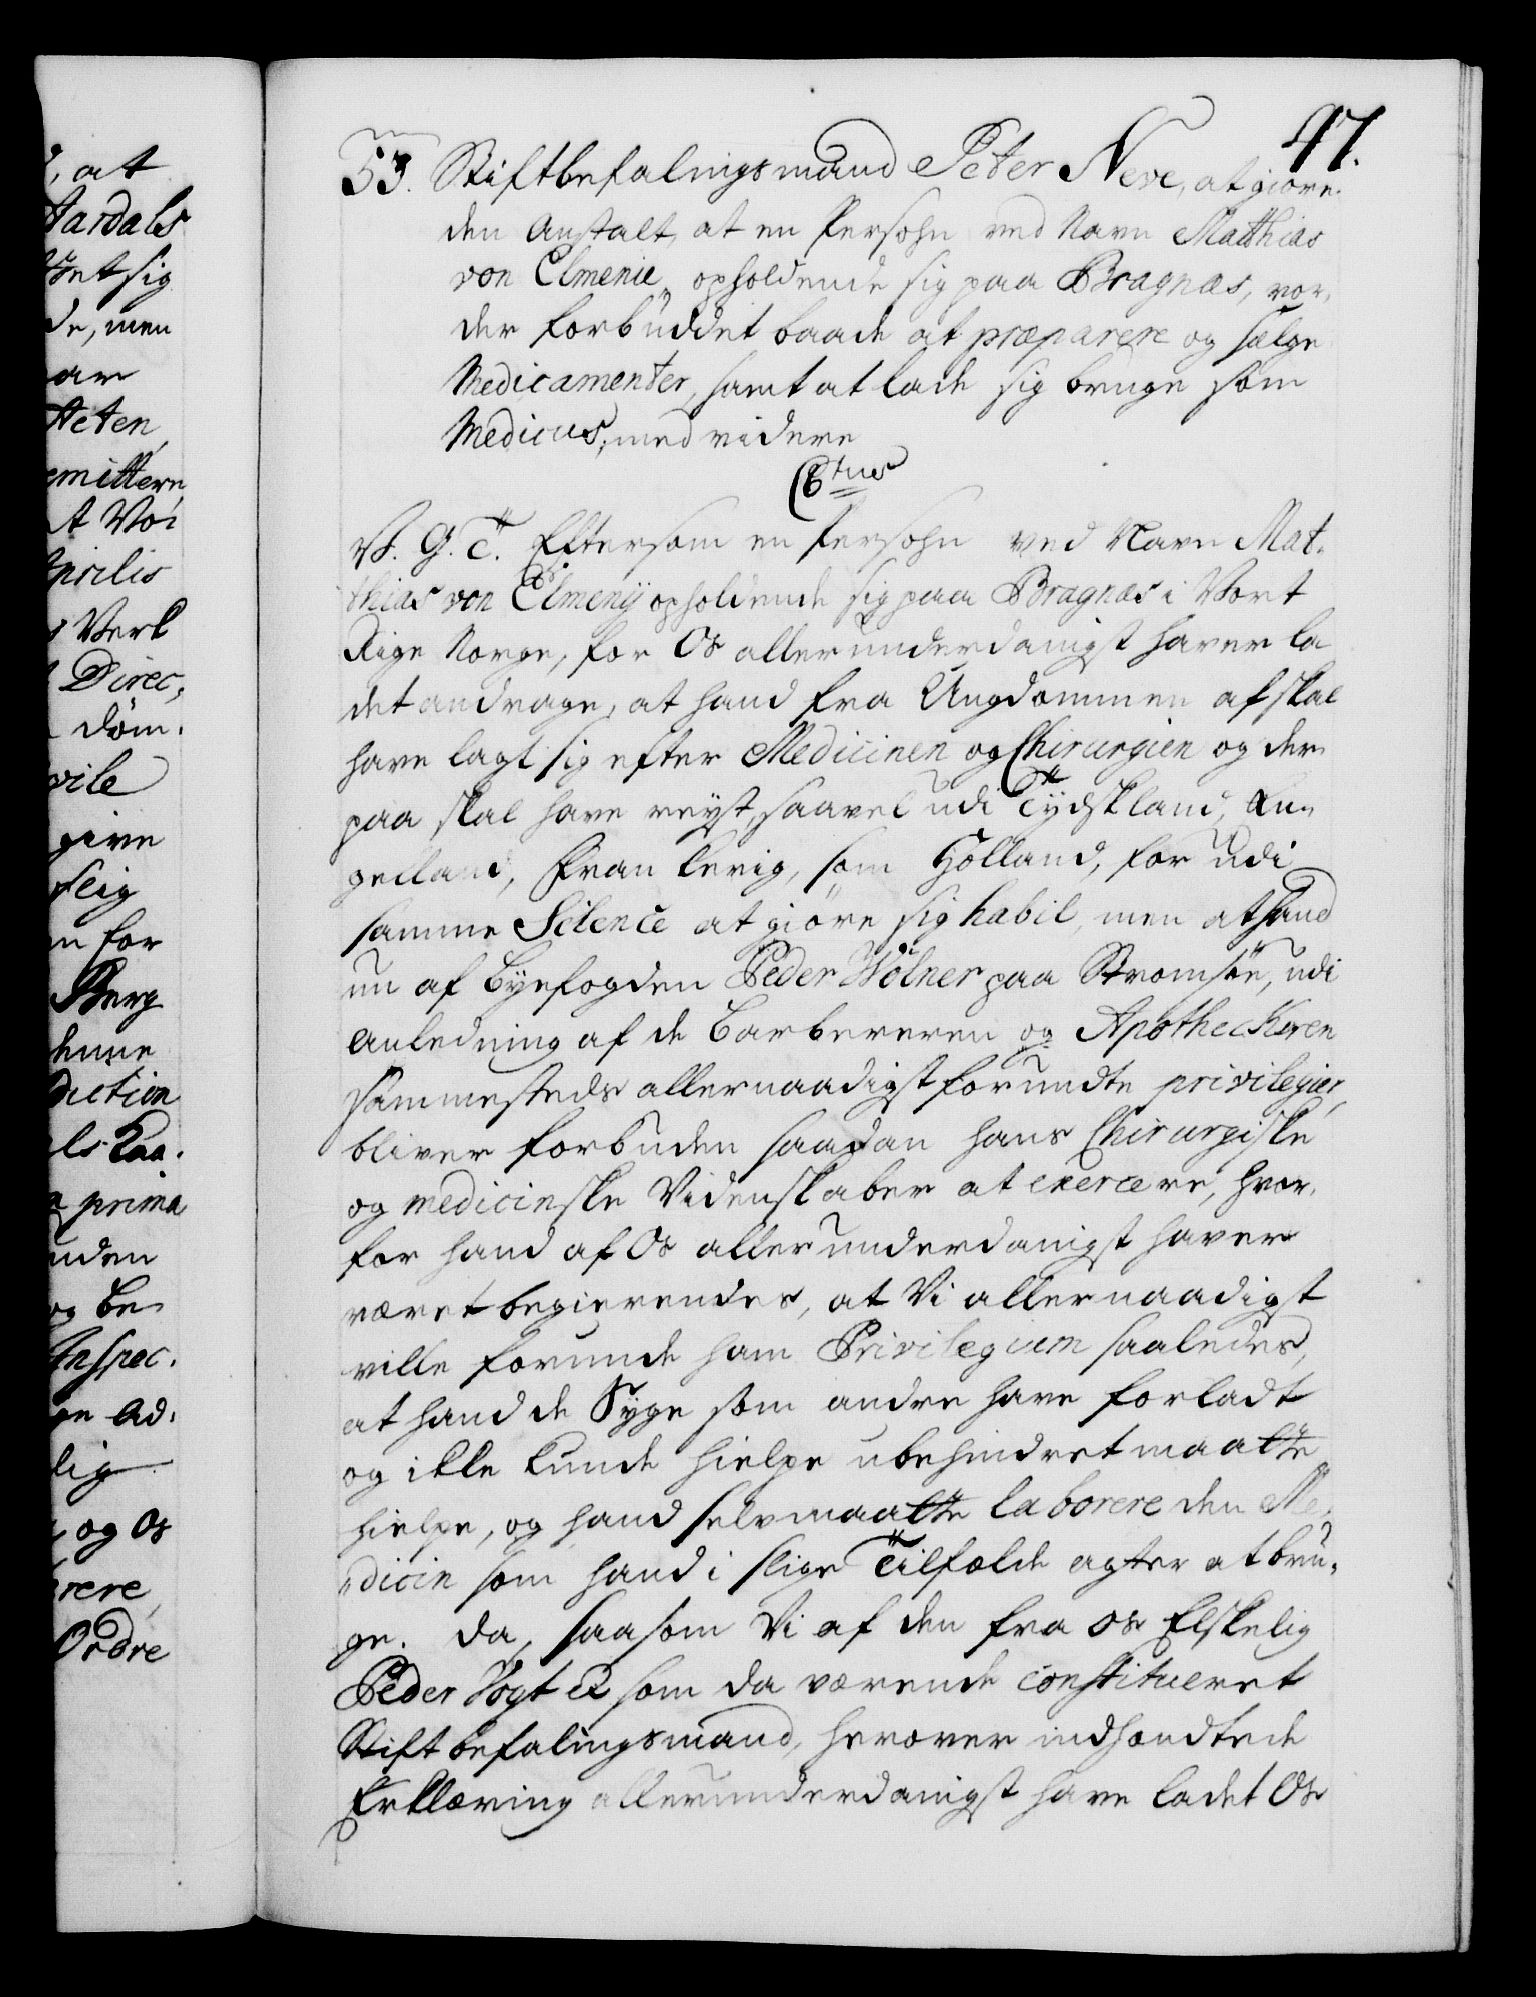 47.
53. Stiftbefalingsmand Peter Neve, at giøre
den Anstalt, at en Persohn ved Navn Matthias
von Elmenie, opholdende sig paa Bragnæs, vor,
der forbuddet baade at præparere og sælge
Medicamenter, samt at lade sig bruge som
Medicus, med videre
C 6tus
V. G. T. Eftersom en Persohn ved Navn Mat,
thias von Elmenÿ opholdende sig paa Bragnæs i Vort
Rige Norge, for Os allerunderdanigst haver la
det andrage, at hand fra Ungdommen af skal
have lagt sig efter Medicinen og Chirurgien og der
paa skal have reyst, saavel udi Tÿdskland, En,,
gelland, Frankerig, som Holland, for udi
samme Science at giöre sig habil, men at hand
nu af Byefogden Peder Wölner paa Stromsöe, udi
Anledning af de Barbereren og Apotheckeren
sammesteds allernaadigst forundte privilegier,
bliver forbuden saadan hans Chirurgiske
og medicinske Videnskaber at exercere, hvor,
for hand af Os allerunderdanigst haver
været begierendes, at Vi allernaadigst
ville forunde ham Privilegium saaledes,
at hand de Syge som andre have forladt
og ikke kunde hielpe ubehindret maatte
hielpe, og hand selv maatte laborere den Me,
,,dicin som hand i slige Tilfælde agter at bru,
ge. Da, saasom Vi af den fra os Elskelig
Peder Vogt etc som da værende constitueret
Stiftbefalingsmand, herover indhændtede
Erklæring allerunderdanigst have ladet Os